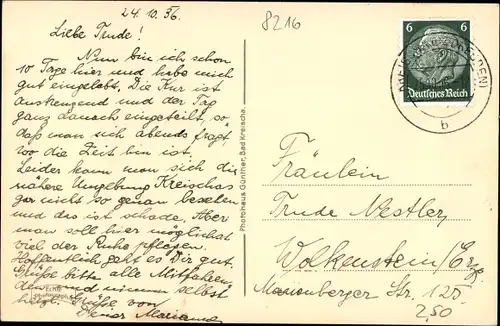 24.10.36.
8216
Liebe Trude!
Nun bin ich schon
10 Tage hier und habe mich
gut eingelebt. Die Kur ist
anstrengend und der Tag
ganz danach eingeteilt, so
daß man sich abends fragt,
wo die Zeit hin ist.
Leider kann man sich die
nähere Umgebung Kreischas
gar nicht so genau besehen
und das ist schade. Aber
man soll hier möglichst
viel der Ruhe pflegen.
Hoffentlich geht es Dir gut.
Grüße bitte alle
und nimm selbst
herzl. Grüße von
Deiner Marianne
Photohaus Günther, Bad Kreischa.
6 6
Deutsches Reich
b
Fräulein
Trude Nestler
Wolkenstein/Erzg.
Marienberger Str. 125
2,50